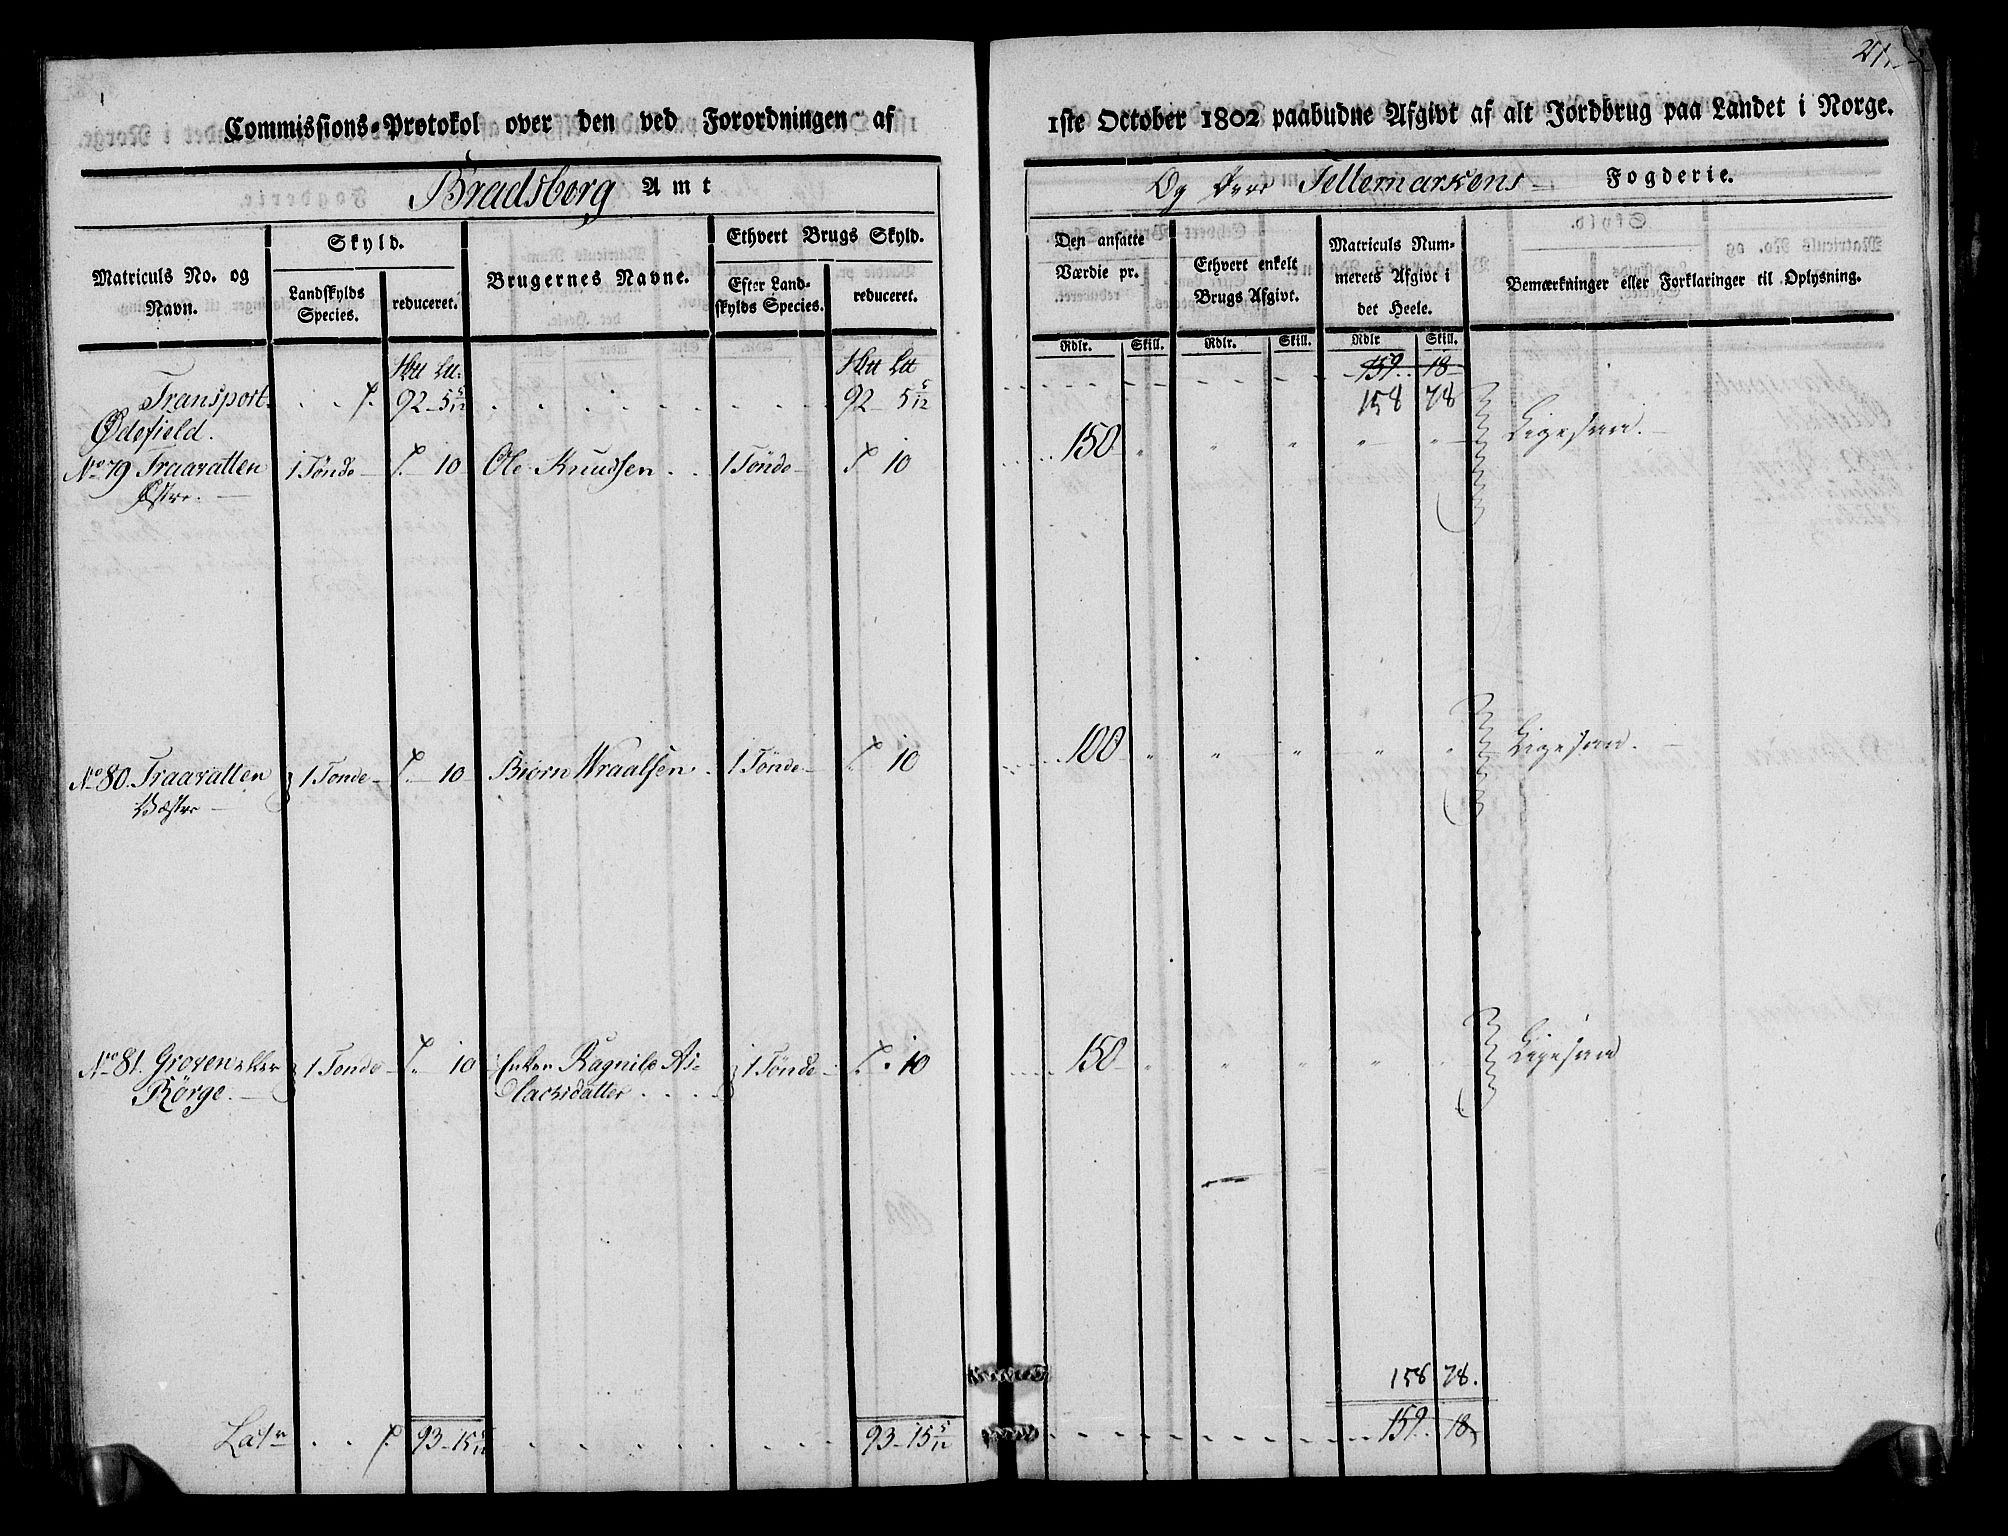 21.
Commissions-Protokol over den ved Forordningen af 1ste October 1802 paabudne Afgivt af alt Jordbrug paa Landet i Norge.
Bradsberg Amt Og Øvre Tellemarkens Fogderie.
Matriculs No. og Navn.
Skyld.
Landskylds Species.
reduceret.
Brugernes Navne.
Ethvert Brugs Skyld.
Efter Landskylds Species.
reduceret.
Den ansatte Værdie pr.
Rdlr. Skill.
Ethvert enkelt Brugs Afgivt.
Rdlr. Skill.
Matriculs Nummerets Afgivt i det Heele.
Rdlr Skill.
Bemærkninger eller Forklaringer til Oplysning.
159 18
Transport 92 5 5/12 92 5 5/12 158 78
Ødefield.
No 79 Traavatten 1 Tønde 10 Ole Knudsen 1 Tønde 10 150 Ligesaa.
Østre.
No 80. Traavatten 1 Tønde 10 Biørn Wraalsen 1 Tønde 10 100 Ligesaa.
Væstre
No 81. Groven eller 1 Tønde 10 Enken Ragnild As- 1 Tønde 10 150 Ligesaa
Rörge. lacksdatter
158 78.
Lat 93 15 5/12 93 15 5/12 159 18